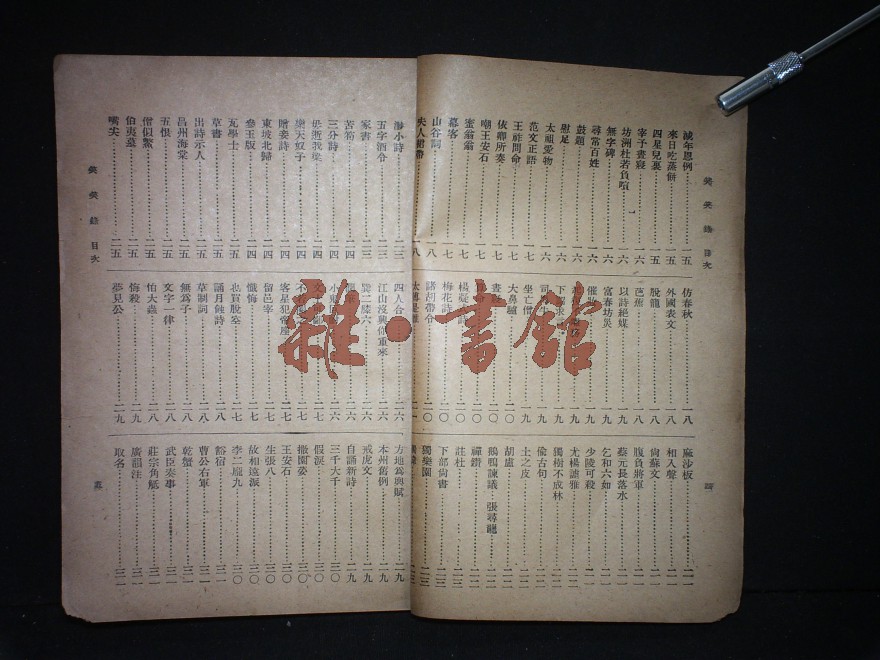 笑笑錄目次
減年恩例……一五
來日吃蒸餅……一五
四星兒裏……一五
宰予晝寢……一六
坊洲杜若負喧……一六
無字碑……一六
尋常百姓……一六
鼓題……一六
慰足……一六
太祖愛物……一六
范文正語……一七
王祚問命……一七
依卿所奏……一七
嘲王安石……一七
蜜翁翁……一七
幕客……一七
山谷詞……一八
夫人裙帶……一八
仿春秋……一八
外國表文……一八
脫籠……一八
芭蕉……一八
以詩絕媒……一九
富春坊災……一九
坐亡僧……一九
大鼻驢……二〇
梅花詩……二〇
諸胡帶令……二〇
麻沙板……二一
相入聲……二一
尙蘇文……二一
腹負將軍……二一
蔡元長落水……二一
乞和六如……二一
少陵可殺……二一
尤楊謔雅……二一
獨樹不成林……二一
偸古句……二一
土之皮……二二
胡盧……二二
鵝鴨諫議……二二
禪鑽……二二
註杜……二二
下部尙書……二三
獨樂園……二三
四
滕小詩……二三
五字酒令……二三
家書……二三
苦筍……二四
三分詩……二四
毋逝我梁……二四
樂天奴子……二四
贈妾詩……二四
東坡北歸……二四
參玉版……二四
瓦學士……二五
草書……二五
出詩示人……二五
昌州海棠……二五
五恨……二五
僧似鱉……二五
伯夷墓……二五
嘴尖……二五
四人合……二六
江山沒興你重來……二六
聽二陸六……二六
客星犯帝座……二七
留邑宰……二七
懺悔……二七
也買脫空……二七
誦月蝕詩……二八
草制詞……二八
無爲子……二八
文字一律……二八
怕大蟲……二八
悔殺……二九
夢見公……二九
方地爲輿賦……二九
本州舊例……二九
戒虎文……二九
自誦新詩……二九
三千六千……三〇
假淚……三〇
撤園荽……三〇
王安石……三〇
生張八……三〇
故相遠派……三〇
李二麗九……三〇
豁宿……三一
曹公右軍……三一
乾蟹……三一
武臣奏事……三一
莊宗角觝……三一
廣韻注……三一
取名……三一
笑笑錄目次
五
雜·書館